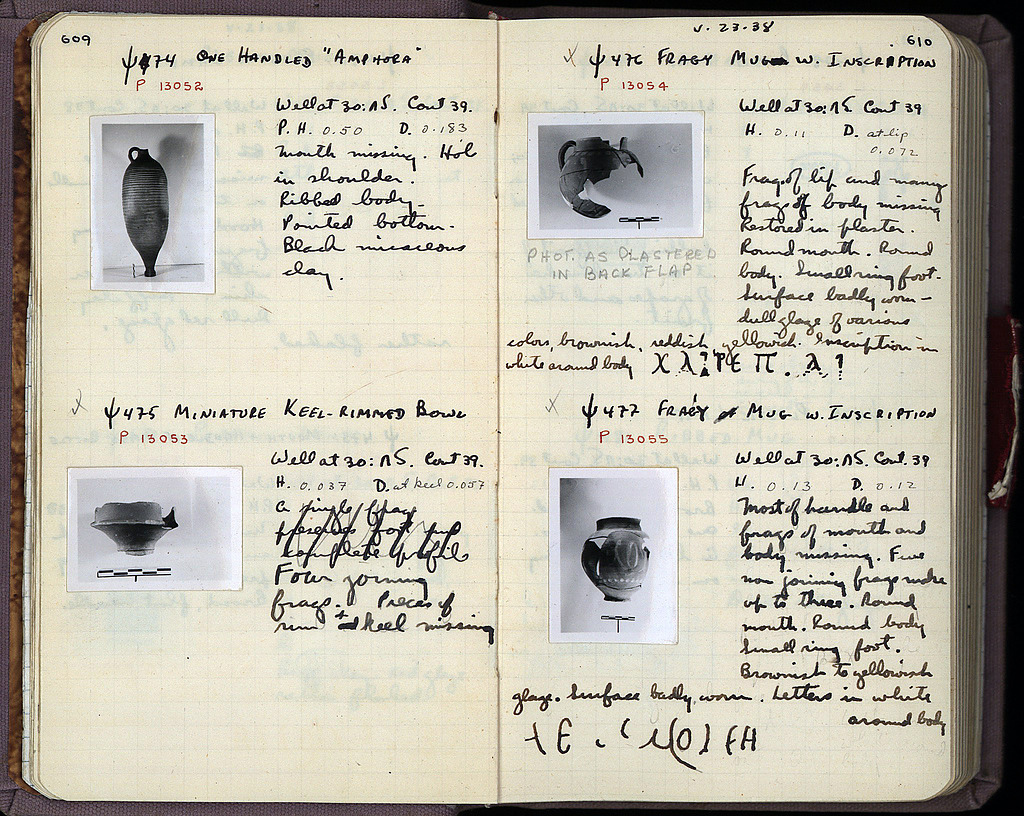 609
ψ474 ONE HANDLED "AMPHORA"
P 13052
Well at 30:ΛΣ. Cont 39.
P.H. 0.50 D. 0.183
Mouth missing. Hole
in shoulder.
Ribbed body.
Pointed bottom.
Black micaceous
clay.
X ψ475 MINIATURE KEEL-RIMMED BOWL
P 13053
Well at 30:ΛΣ. Cont 39.
H. 0.037 D. at keel 0.057
A single frag
preserves foot and
complete profile
Four joining
frags. Pieces of
rim + keel missing
V. 23.38
610
X ψ476 FRAGY MUG W. INSCRIPTION
P 13054
Well at 30:ΛΣ. Cont 39
H. 0.11 D. at lip
0.072
Frag of lip and many
frags of body missing
Restored in plaster.
Round mouth. Round
body. Small ring foot.
Surface badly worn –
dull glaze of various
colors, brownish, reddish, yellowish. Inscription in
white around body
PHOT. AS PLASTERED
IN BACK FLAP
X ψ477 FRAGY MUG W. INSCRIPTION
P 13055
Well at 30:ΛΣ. Cont. 39
H. 0.13 D. 0.12
Most of handle and
frags of mouth and
body missing. Five
non joining frags make
up to three. Round
mouth. Round body
Small ring foot.
Brownish to yellowish
glaze. Surface badly worn. Letters in white
around body